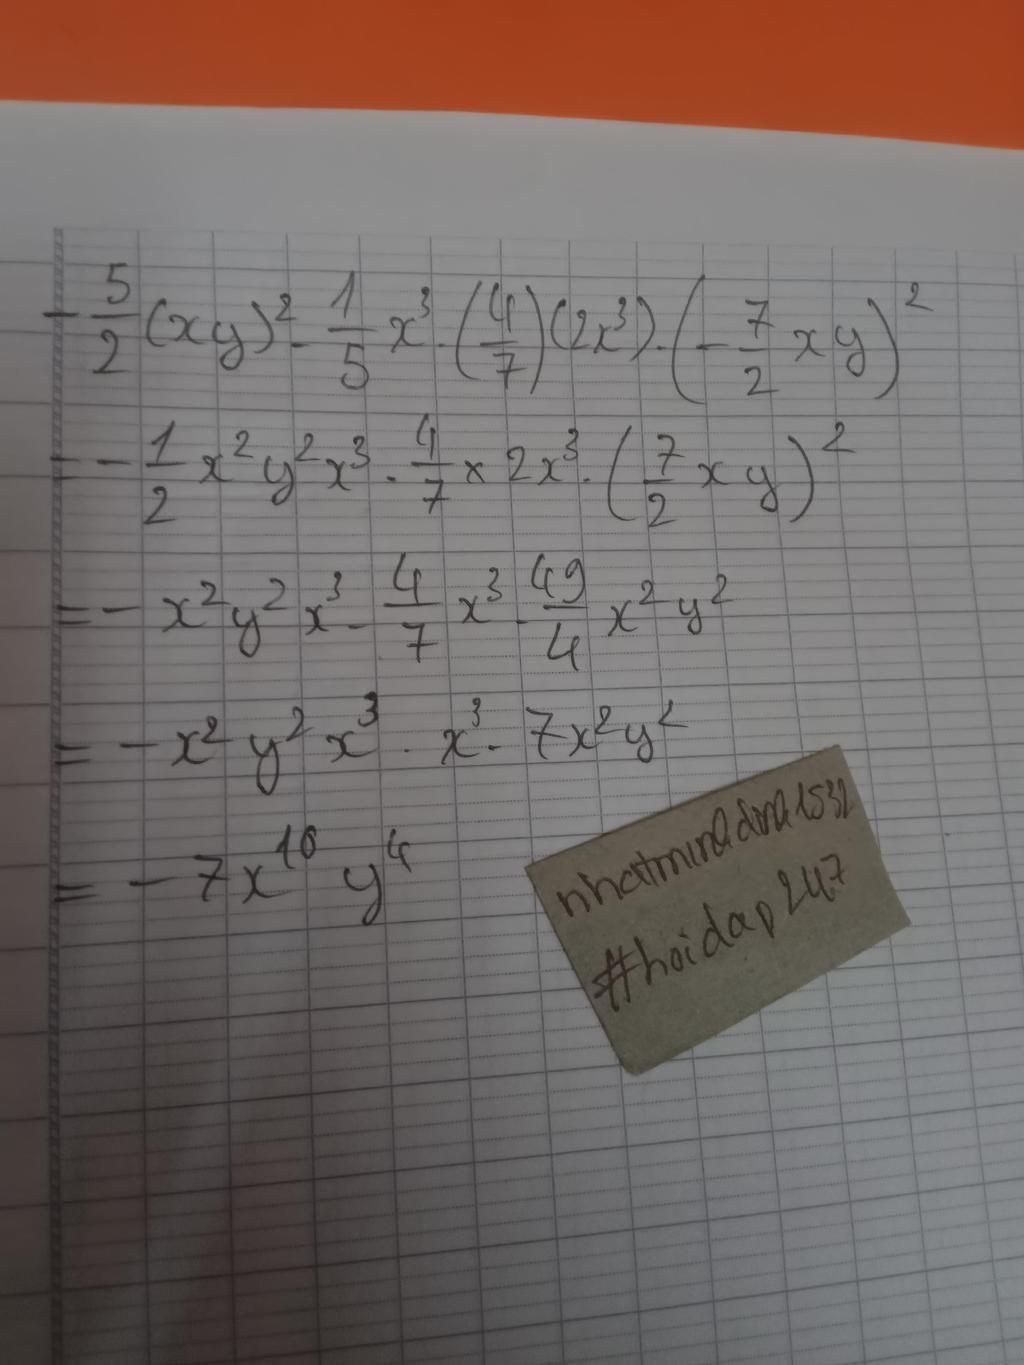 -5/2 (xy)² · 1/5 x³ · (4/7) (2x³) · (-7/2 xy)²
= -1/2 x² y² x³ · 4/7 × 2x³ · (7/2 xy)²
= - x² y² x³ · 4/7 x³ · 49/4 x² y²
= - x² y² x³ · x³ · 7x² y²
= - 7x¹⁰ y⁴
#hoidap247